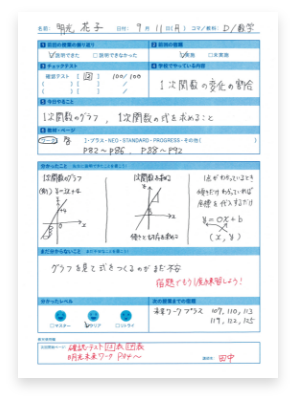 名前: 明光 花子 日付: 9月11日(月) コマ/教科: D/数学
1 前回の授業の振り返り
☑説明できた □説明できなかった
2 宿題の確認
☑実施 □未実施
3 チェックテスト
確認テスト [回] 100/100
4 学校でやっている内容
1次関数の変化の割合
5 今日やること
1次関数のグラフ、1次関数の式を求めること
6 教材・ページ
ワーク
)・プラス・NEO・STANDARD・PROGRESS・その他(
P82～P86 P88～P92
分かったこと
1次関数のグラフ
y
x
1次関数を求める
y
x
1点がわかっているとき
座標を代入するだけ
y=ax+b
(x, y)
まだ分からないこと
グラフを見て式をつくるのがまだ不安
宿題でもう1度練習しよう!
分かったレベル
□マスター ☑クリア □トライ
次の授業までの宿題
未来ワークプラス 109, 110, 113
119, 122, 125
確認テスト
明光未来ワーク P94～
田中